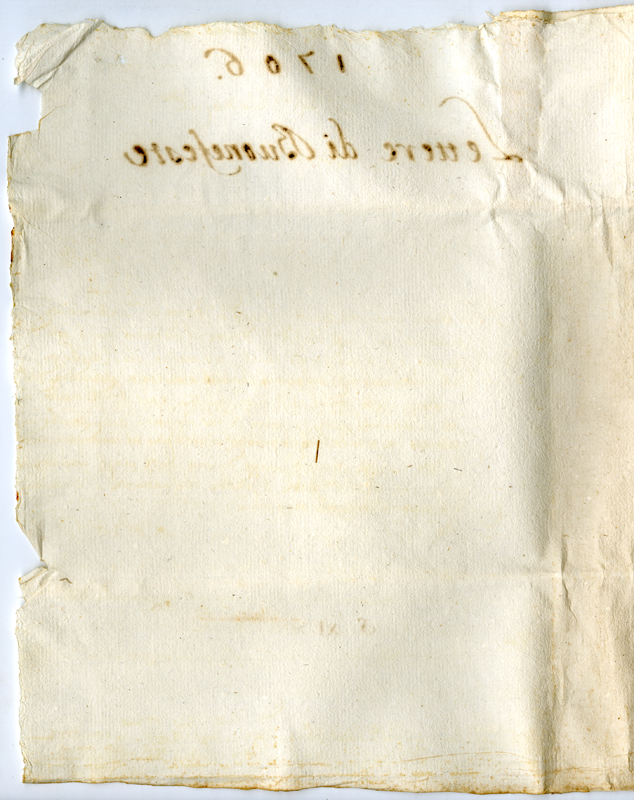 1706.
Lettere di Buonefeste